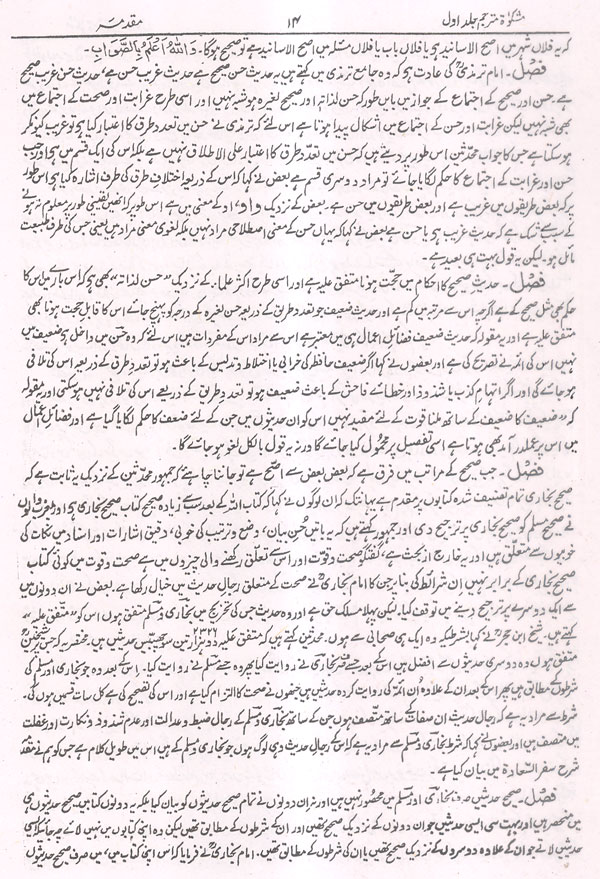 مشکوٰۃ مترجم جلد اول ۱۴ مقدمہ
کہ یہ فلاں شہر میں اصح الاسانید ہے یا فلاں باب یا فلاں مسئلہ میں اصح الاسانید ہے تو صحیح ہوگا۔ وَاللّٰہُ اَعْلَمُ بِالصَّوَابِ۔
فصل۔ امام ترمذیؒ کی عادت ہے کہ وہ جامع ترمذی میں کہتے ہیں یہ حدیث حسن صحیح ہے حدیث غریب حسن ہے، حدیث حسن غریب صحیح
ہے۔ حسن اور صحیح کے اجتماع کے جواز میں بایں طور کہ حسن لذاتہ اور صحیح لغیرہ ہو شبہ نہیں اور اسی طرح غرابت اور صحت کے اجتماع میں
بھی شبہ نہیں لیکن غرابت اور حسن کے اجتماع میں اشکال پیدا ہوتا ہے اس لئے کہ ترمذی نے حسن میں تعدد طرق کا اعتبار کیا ہے تو غریب کیونکر
ہو سکتا ہے جس کا جواب محدثین اس طور پر دیتے ہیں کہ حسن میں تعدد طرق کا اعتبار علی الاطلاق نہیں ہے بلکہ اس کی ایک قسم میں ہے اور جب
حسن اور غرابت کے اجتماع کا حکم لگایا جائے تو مراد دوسری قسم ہے بعض نے کہا کہ اس کے ذریعہ اختلاف طرق کی طرف اشارہ کیا ہے اس طور
پر کہ بعض طریقوں میں غریب ہے اور بعض طریقوں میں حسن ہے۔ بعض کے نزدیک واو، او کے معنی میں ہے اس طور پر کہ انھیں یقینی طور پر معلوم نہ ہونے
کے سبب سے شک ہے کہ حدیث غریب ہے یا حسن ہے بعض نے کہا کہ یہاں حسن کے معنی اصطلاحی مراد نہیں بلکہ لغوی معنی مراد ہیں یعنی جس کی طرف طبیعت
مائل ہو۔ لیکن یہ قول بہت ہی بعید ہے۔
فصل۔ حدیث صحیح کا احکام میں حجت ہونا متفق علیہ ہے اور اسی طرح اکثر علماء کے نزدیک "حسن لذاتہ" بھی ہے کہ اس بارے میں اس کا
حکم بھی مثل صحیح کے ہے اگرچہ اس سے مرتبہ میں کم ہے اور حدیث ضعیف جو تعدد طریق کے ذریعہ حسن لغیرہ کے درجہ کو پہنچ جائے اس کا قابل حجت ہونا بھی
متفق علیہ ہے اور یہ مقولہ کہ حدیث ضعیف فضائل اعمال ہی میں معتبر ہے اس سے مراد اس کے مفردات ہیں اس لئے کہ وہ حسن میں داخل ہے ضعیف میں
نہیں اس کی ائمہ نے تصریح کی ہے اور بعضوں نے کہا اگر ضعیف حافظہ کی خرابی یا اختلاط و تدلیس کے باعث ہو تو تعدد طرق کے ذریعہ اس کی تلافی
ہو جائے گی اور اگر اتہام کذب یا شذوذ اور خطائے فاحش کے باعث ضعیف ہو تو تعدد طریق کے ذریعے اس کی تلافی نہیں ہو سکتی اور یہ مقولہ
کہ "ضعیف کا ضعیف کے ساتھ ملنا قوت کے لئے مفید نہیں" اس کو ان حدیثوں میں جن کے لئے ضعف کا حکم لگایا گیا ہے اور فضائل اعمال
میں اس پر عملدرآمد بھی ہوتا ہے اسی تفصیل پر محمول کیا جائے گا ورنہ یہ قول بالکل لغو ہو جائے گا۔
فصل۔ جب صحیح کے مراتب میں فرق ہے کہ بعض بعض سے اصح ہے تو جاننا چاہئے کہ جمہور محدثین کے نزدیک یہ ثابت ہے کہ
صحیح بخاری تمام تصنیف شدہ کتابوں پر مقدم ہے یہانتک کہ ان لوگوں نے کہا کہ کتاب اللہ کے بعد سب سے زیادہ صحیح کتاب صحیح بخاری ہے اور مغرب والوں
نے صحیح مسلم کو صحیح بخاری پر ترجیح دی اور جمہور کہتے ہیں کہ یہ باتیں حسن بیان، وضع و ترتیب کی خوبی، دقیق اشارات اور اسناد میں نکات کی
خوبیوں سے متعلق ہیں اور یہ خارج از بحث ہے، گفتگو صحت و قوت اور اس سے تعلق رکھنے والی چیزوں میں ہے صحت و قوت میں کوئی کتاب
صحیح بخاری کے برابر نہیں ان شرائط کی بنا پر جن کا امام بخاریؒ نے صحت کے متعلق رجال حدیث میں خیال رکھا ہے بعض نے ان دونوں میں
سے ایک دوسرے پر ترجیح دینے میں توقف کیا۔ لیکن پہلا مسلک حق ہے اور وہ حدیث جس کی تخریج میں بخاری و مسلم متفق ہوں اس کو "متفق علیہ"
کہتے ہیں۔ شیخ ابن حجرؒ نے کہا بشرطیکہ وہ ایک ہی صحابی سے ہوں۔ محدثین کہتے ہیں کہ متفق علیہ دو ہزار تین سو چھبیس ۲۳۲۶ حدیثیں ہیں۔ مختصر یہ کہ جس پر شیخین
متفق ہوں وہ دوسری حدیثوں سے افضل ہیں اس کے بعد جسے فقط بخاری نے روایت کیا پھر وہ جسے مسلم نے روایت کیا۔ اس کے بعد وہ جو بخاری اور مسلم کی
شرطوں کے مطابق ہیں پھر اس کے بعد ان کے علاوہ ان ائمہ کی روایت کردہ حدیثیں ہیں جنھوں نے صحت کا التزام کیا ہے اور اس کی تصحیح کی ہے کل سات قسمیں ہوں گی۔
شرط سے مراد یہ ہے کہ رجال حدیث ان صفات کے ساتھ متصف ہوں جن کے ساتھ بخاری و مسلم کے رجال ضبط و عدالت اور عدم شذوذ و نکارت اور غفلت
میں متصف ہیں اور بعضوں نے کہا کہ شرط بخاری و مسلم سے مراد یہ ہے کہ اس کے رجال حدیث وہی لوگ ہوں جو بخاری و مسلم کے ہیں اس میں طویل کلام ہے جس کو ہم نے مقدمہ
شرح سفر السعادۃ میں بیان کیا ہے۔
فصل۔ صحیح حدیثیں صرف بخاری اور مسلم میں محصور نہیں ہیں اور نہ ان دونوں نے تمام صحیح حدیثوں کو بیان کیا بلکہ یہ دونوں کتابیں صحیح حدیثوں ہی
میں منحصر ہیں اور بہت سی ایسی حدیثیں جو ان دونوں کے نزدیک صحیح تھیں اور ان کے شرطوں کے مطابق تھیں لیکن وہ اپنی کتابوں میں نہیں لائے چہ جائیکہ ایسی
حدیثیں لاتے جو ان کے علاوہ دوسروں کے نزدیک صحیح تھیں یا ان کی شرطوں کے مطابق تھیں۔ امام بخاریؒ نے فرمایا کہ اس اپنی کتاب میں، میں صرف صحیح حدیثوں